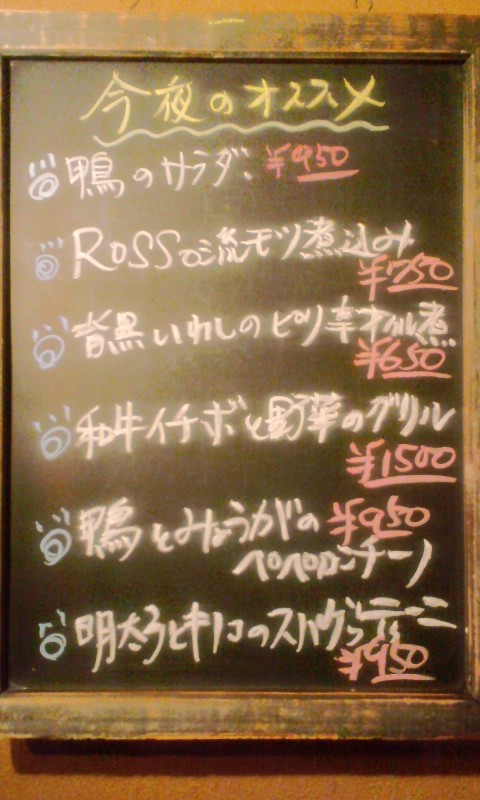 今夜のオススメ
鴨のサラダ ¥950
ROSSO流モツ煮込み
¥750
背黒いわしのピリ辛オイル煮
¥650
和牛イチボと野菜のグリル
¥1500
鴨とみょうがの ¥950
ペペロンチーノ
明太子とキノコのスパゲッティーニ
¥950